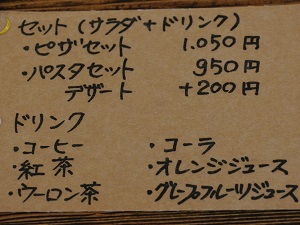 セット(サラダ+ドリンク)
・ピザセット 1.050円
・パスタセット 950円
デザート +200円
ドリンク
・コーヒー ・コーラ
・紅茶 ・オレンジジュース
・ウーロン茶 ・グレープフルーツジュース